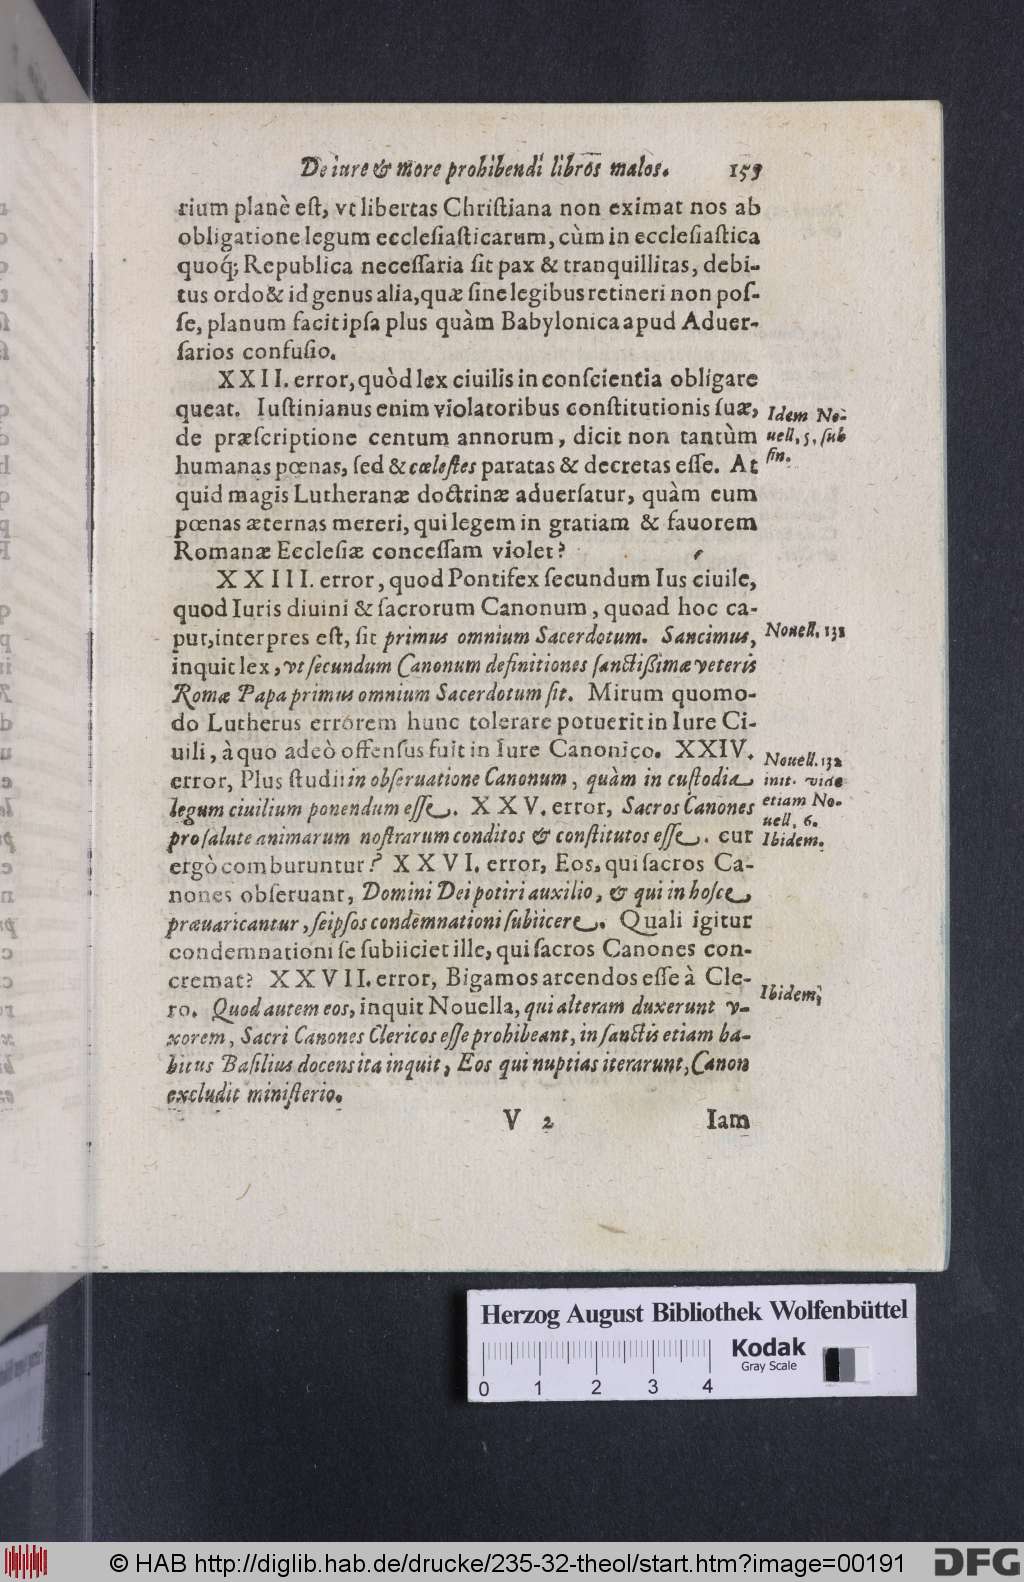 De iure & more prohibendi libros malos. 155
rium planè est, vt libertas Christiana non eximat nos ab
obligatione legum ecclesiasticarum, cùm in ecclesiastica
quoq́; Republica necessaria sit pax & tranquillitas, debi-
tus ordo & id genus alia, quæ sine legibus retineri non pos-
se, planum facit ipsa plus quàm Babylonica apud Aduer-
sarios confusio.
XXII. error, quòd lex ciuilis in conscientia obligare
queat. Iustinianus enim violatoribus constitutionis suæ,
de præscriptione centum annorum, dicit non tantùm
humanas pœnas, sed & cœlestes paratas & decretas esse. At
quid magis Lutheranæ doctrinæ aduersatur, quàm eum
pœnas æternas mereri, qui legem in gratiam & fauorem
Romanæ Ecclesiæ concessam violet?
Idem No-
uell. 5. sub
fin.
XXIII. error, quod Pontifex secundum Ius ciuile,
quod Iuris diuini & sacrorum Canonum, quoad hoc ca-
put, interpres est, sit primus omnium Sacerdotum. Sancimus,
inquit lex, vt secundum Canonum definitiones sanctißimæ veteris
Romæ Papa primus omnium Sacerdotum sit. Mirum quomo-
do Lutherus errorem hunc tolerare potuerit in Iure Ci-
uili, à quo adeò offensus fuit in Iure Canonico. XXIV.
error, Plus studii in obseruatione Canonum, quàm in custodia
legum ciuilium ponendum esse. XXV. error, Sacros Canones
pro salute animarum nostrarum conditos & constitutos esse. cur
ergò comburuntur? XXVI. error, Eos, qui sacros Ca-
nones obseruant, Domini Dei potiri auxilio, & qui in hosce
præuaricantur, seipsos condemnationi subiicere. Quali igitur
condemnationi se subiiciet ille, qui sacros Canones con-
cremat? XXVII. error, Bigamos arcendos esse à Cle-
ro. Quod autem eos, inquit Nouella, qui alteram duxerunt v-
xorem, Sacri Canones Clericos esse prohibeant, in sanctis etiam ha-
bitus Basilius docens ita inquit, Eos qui nuptias iterarunt, Canon
excludit ministerio.
Nouell. 131
Nouell. 132
init. vide
etiam No-
uell. 6.
Ibidem.
Ibidem;
V 2 Iam
Herzog August Bibliothek Wolfenbüttel
Kodak
Gray Scale
0 1 2 3 4
© HAB http://diglib.hab.de/drucke/235-32-theol/start.htm?image=00191
DFG